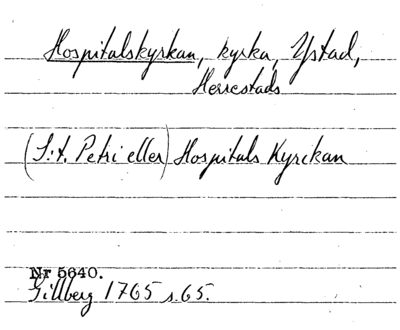 Hospitalskyrkan, kyrka, Ystad,
Herrestads
(S:t. Petri eller) Hospitals Kyrckan
Nr 5640.
Gillberg 1765 s. 65.